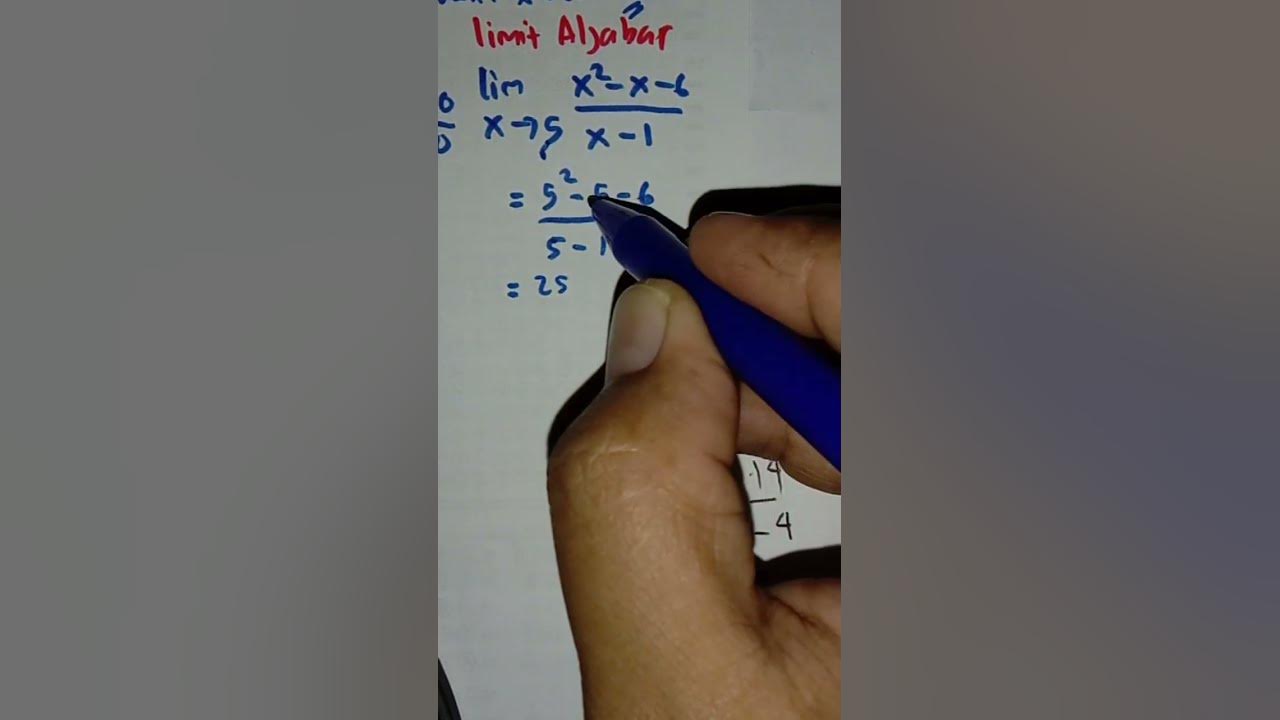 limit Aljabar
lim x→5 x²-x-6 / x-1
= 5²-5-6 / 5-1
= 25
14
4